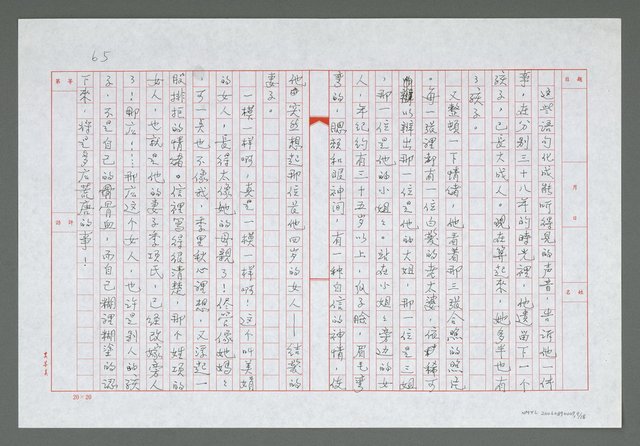 65
題目
月
日
姓名
這些語句化成能听得見的声音，告訴他一件
事，在分别三十八年的時光裡，他遺留下一个
孩子，已長大成人。現在算起來，她多半也有
了孩子。
又整頓一下情緒，他看着那三張合照的照片
。每一張裡都有一位白髮的老太婆，依稀可
以辨出那一位是他的大姐，那一位是三姐
，那一位是他的小姐。站在小姐旁边的女
人，年紀約有三十五岁以上，瓜子臉，眉毛
的腮頰和眼神间，有一种自信的神情，使
他突然想起那位苦他四岁的女人——結髮的
妻子。
一模一样啊，真是一模一样啊！这个叫美娟
的女人，長得太像她的母親了！尽管像她媽媽
，可一点也不像我，李里秋心裡想，又浮起一
股排拒的情緒。信裡寫得很清楚，那个姓項的
女人，也就是他的妻子李項氏，已經改嫁旁人
了！那広！那広这个女人，也許是别人的孩
子，不是自己的骨血，而自己糊裡糊塗的認
下來，將是多広荒唐的事！
第 頁
評語
20×20